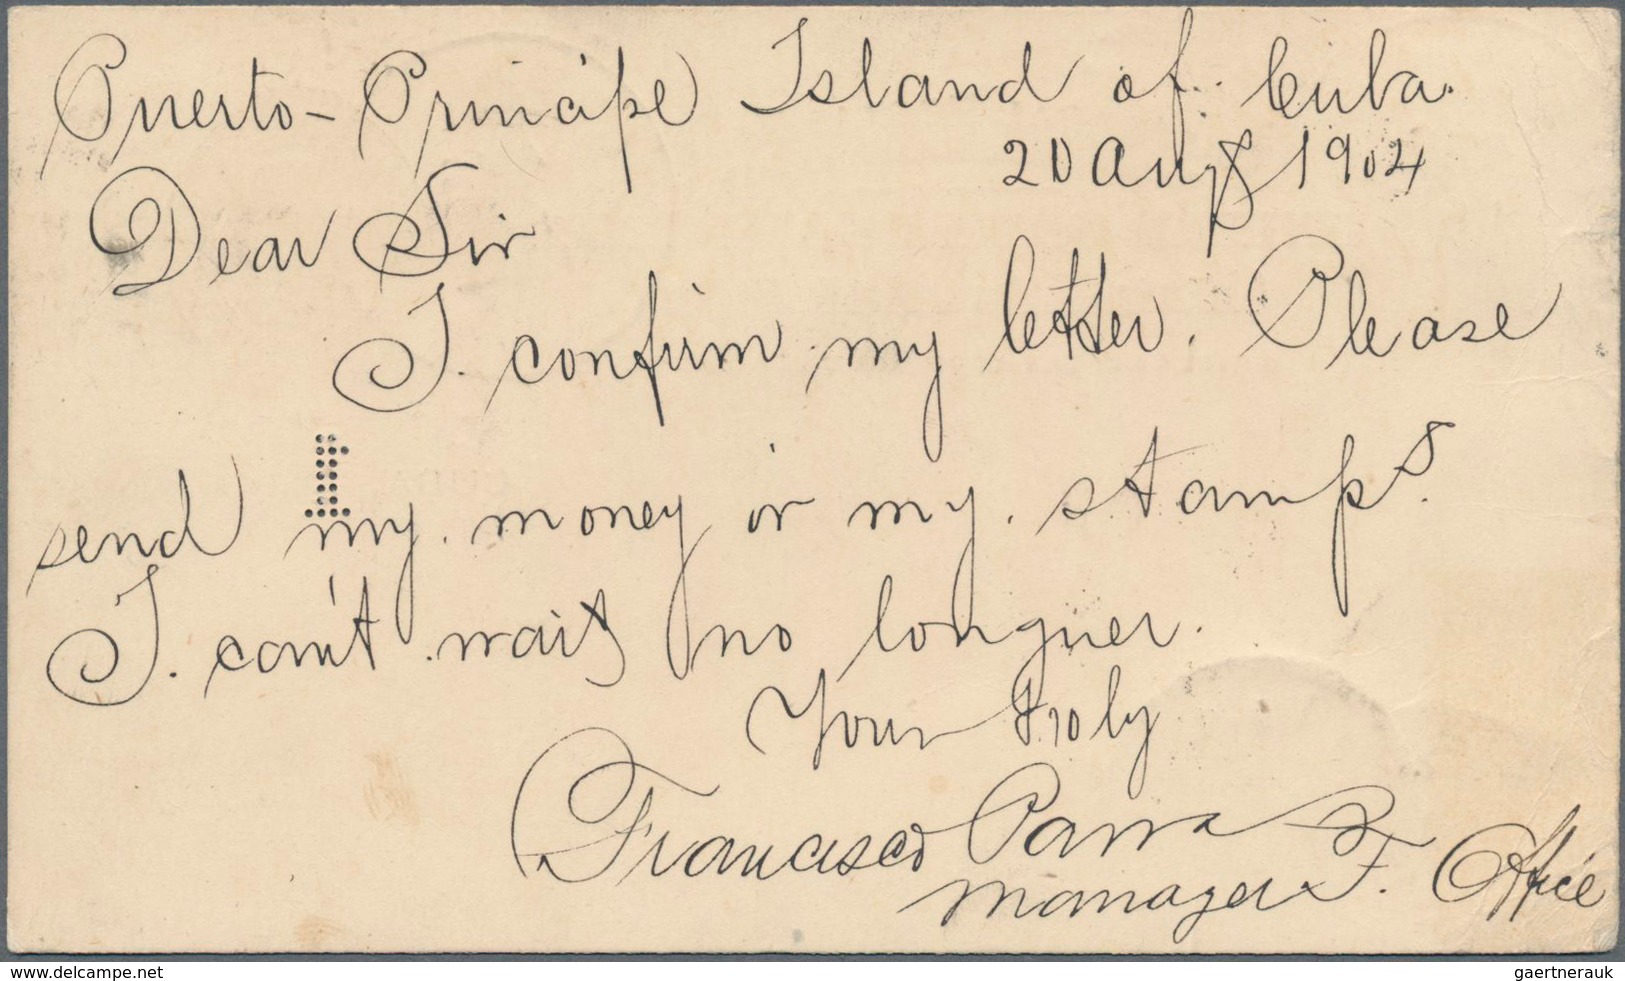 Puerto-Principe Island of Cuba.
20 Aug 1904
Dear Sir
I. confirm my letter. Please
send my. money or my. stamps.
I. can't wait no longuer.
Your troly
Francisco Parra
manager F. Office
www.delcampe.net
gaertnerauk